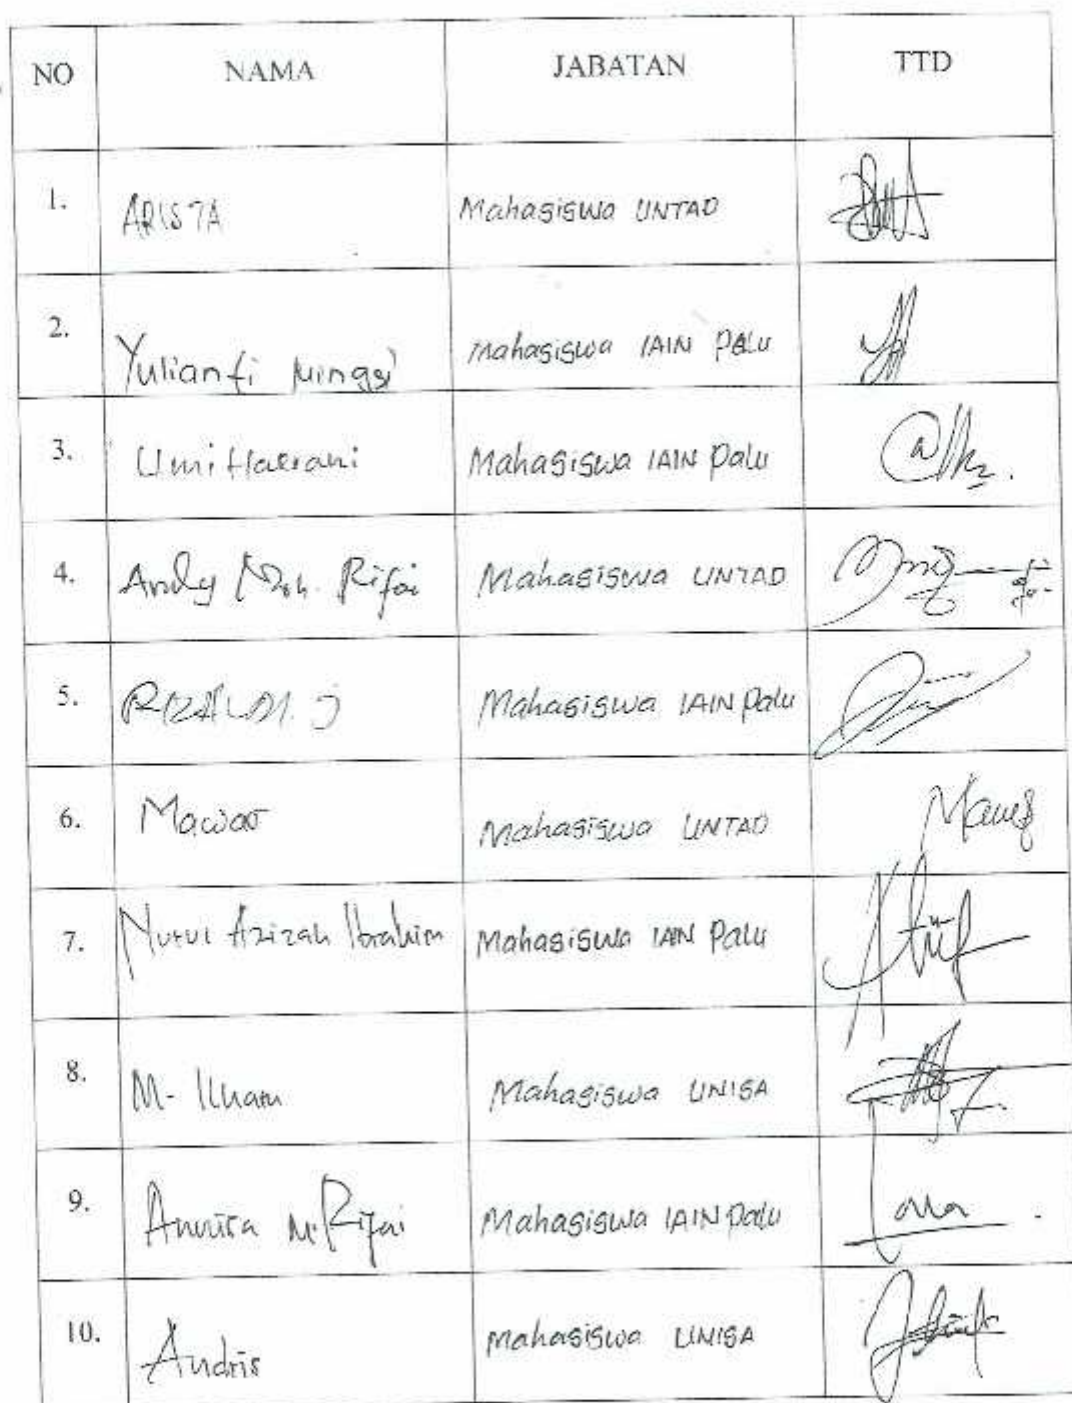 NO NAMA JABATAN TTD
1. ARISTA Mahasiswa UNTAD
2. Yulianti Mahasiswa IAIN Palu
3. Umi Haerani Mahasiswa IAIN Palu
4. Andy Moh. Rifai Mahasiswa UNTAD
5. RIZAL Mahasiswa IAIN Palu
6. Mawar Mahasiswa UNTAD
7. Nurul Azizah Ibrahim Mahasiswa IAIN Palu
8. M. Ilham Mahasiswa UNISA
9. M. Rifai Mahasiswa IAIN Palu
10. Andris Mahasiswa UNISA